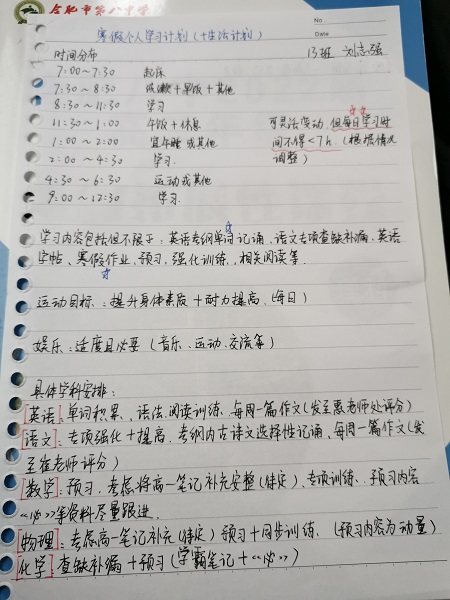 合肥市第八中学
No
寒假个人学习计划（+生活计划）
时间分布
13班 刘志强
7:00～7:30 起床
7:30～8:30 洗漱+早饭+其他
8:30～11:30 学习
11:30～1:00 午饭+休息
可灵活变动，但每日学习时
1:00～2:00 宜午睡或其他
间不得<7h.（根据情况
2:00～4:30 学习.
调整）
4:30～6:30 运动或其他
9:00～12:30 学习.
学习内容包括但不限于：英语考纲单词记诵、语文专项查缺补漏、英语
字帖、寒假作业、预习、强化训练、相关阅读等.
运动目标：提升身体素质+耐力提高.（每日）
娱乐：适度且必要（音乐、运动、交流等）
具体学科安排：
[英语]：单词积累、语法、阅读训练、每周一篇作文（发至惠老师处评分）
[语文]：专项强化+提高、考纲内古诗文选择性记诵、每周一篇作文（发
至崔老师评分）
[数学]：预习、考虑将高一笔记补充完整（待定）、专项训练、预习内容
《必》等资料尽量跟进.
[物理]：考虑高一笔记补充（待定）预习+同步训练.（预习内容为动量）
[化学]：查缺补漏+预习（学霸笔记+《必》）